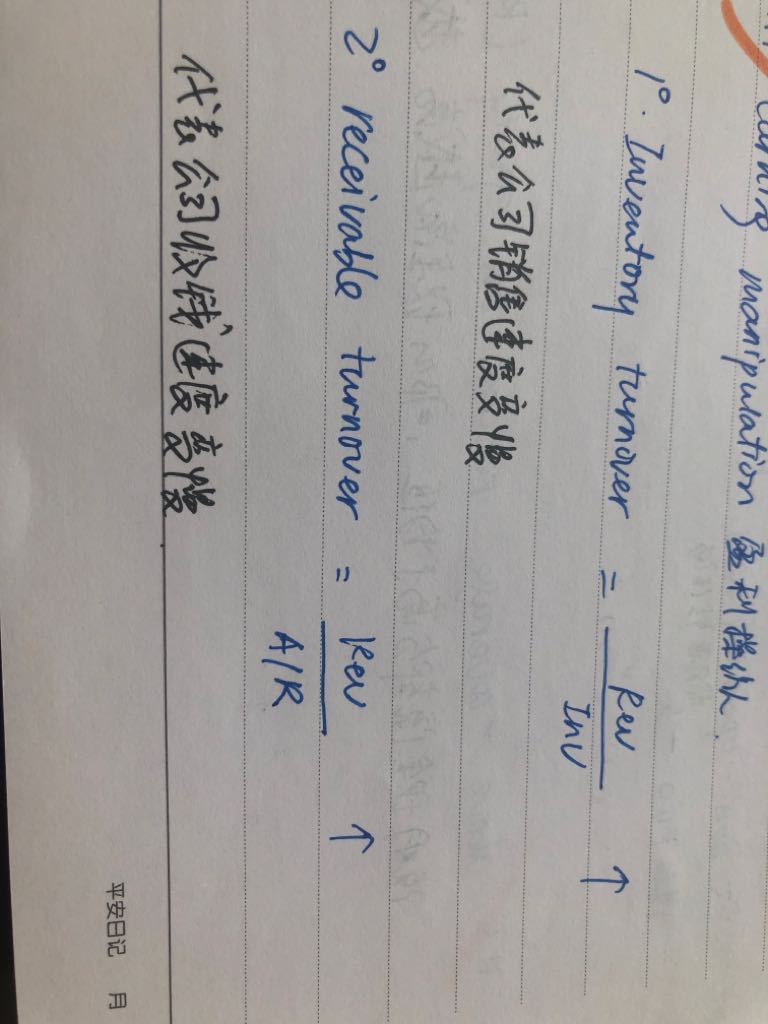 manipulation 盈利操纵.
1°. Inventory turnover = Rev ←
Inv
代表公司销售速度变慢
2° receivable turnover = Rev ←
A/R
代表公司收钱速度变慢
平安日记 月